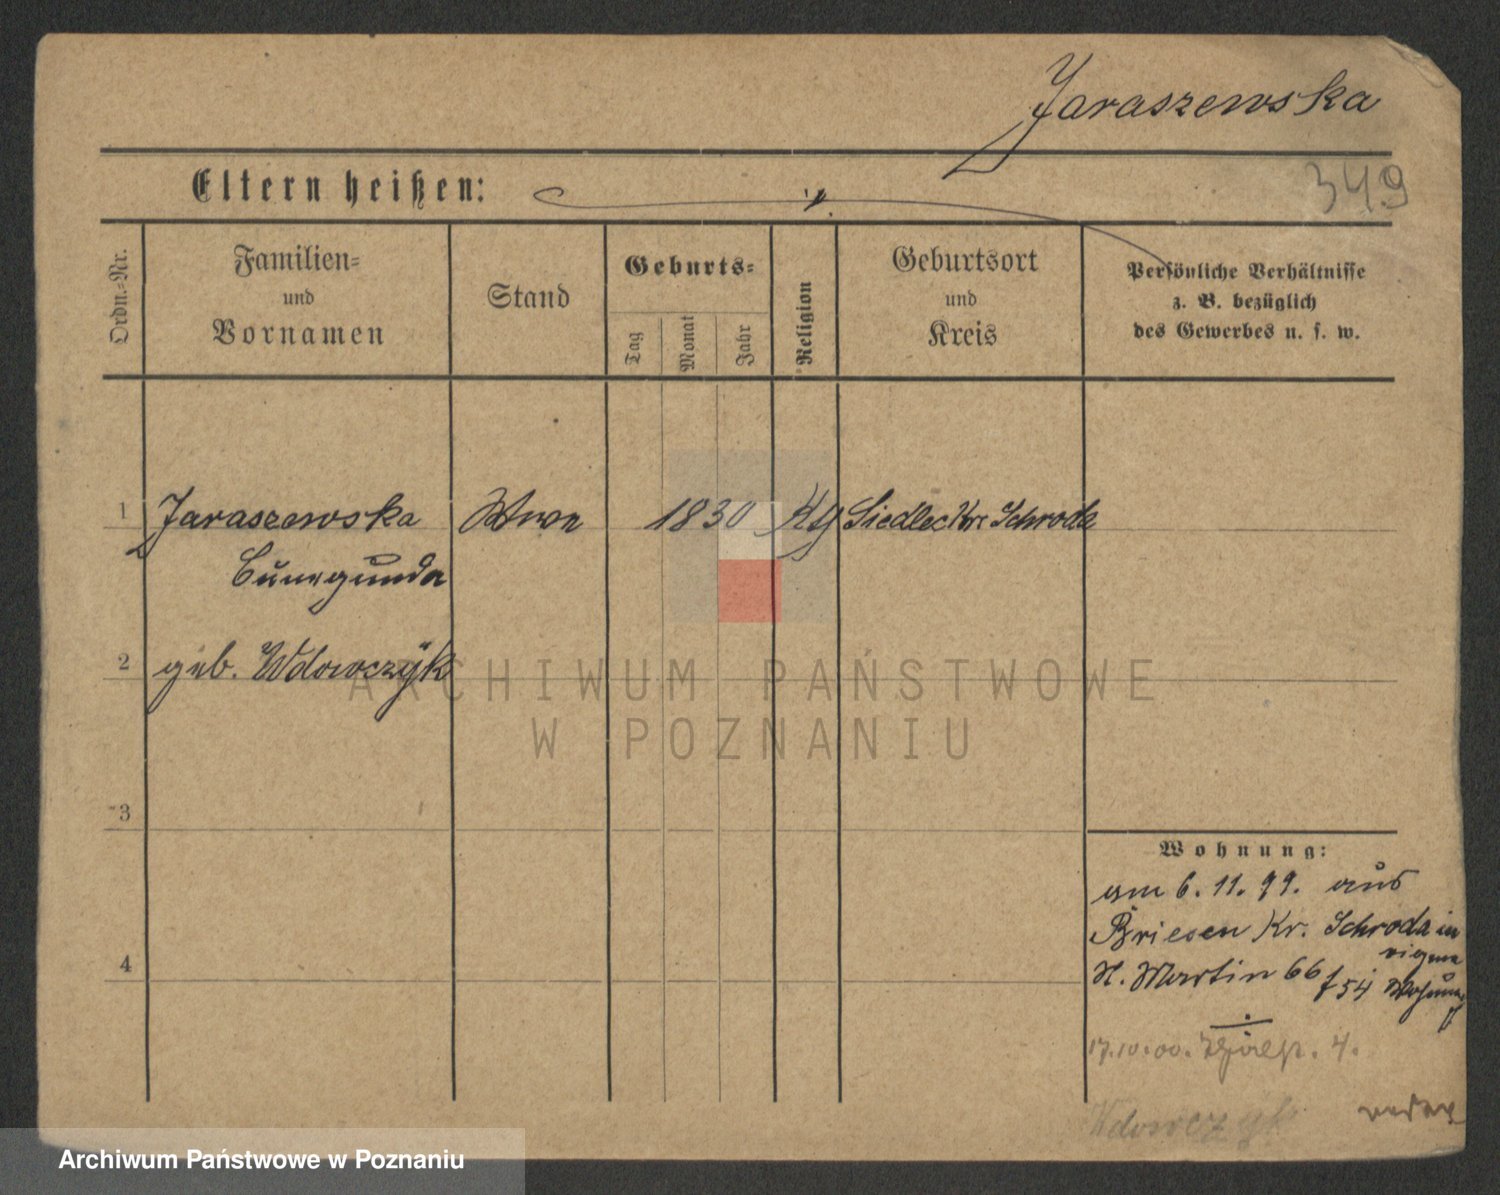 Jaraszewska
349
Eltern heißen:
Ordn.-Nr.
Familien-
und
Vornamen
Stand
Geburts-
Tag
Monat
Jahr
Religion
Geburtsort
und
Kreis
Persönliche Verhältnisse
z. B. bezüglich
des Gewerbes u. s. w.
1 Jaraszewska Wwe 1830 Kg Siedlec Kr. Schroda
Cunegunda
2 geb. Wdowczyk
ARCHIWUM PAŃSTWOWE
W POZNANIU
3
4
Wohnung:
am 6. 11. 99. aus
Briesen Kr. Schroda in
eigene
St. Martin 66/54 Wohnung
17.10.00. 4.
Wdowczyk
Archiwum Państwowe w Poznaniu